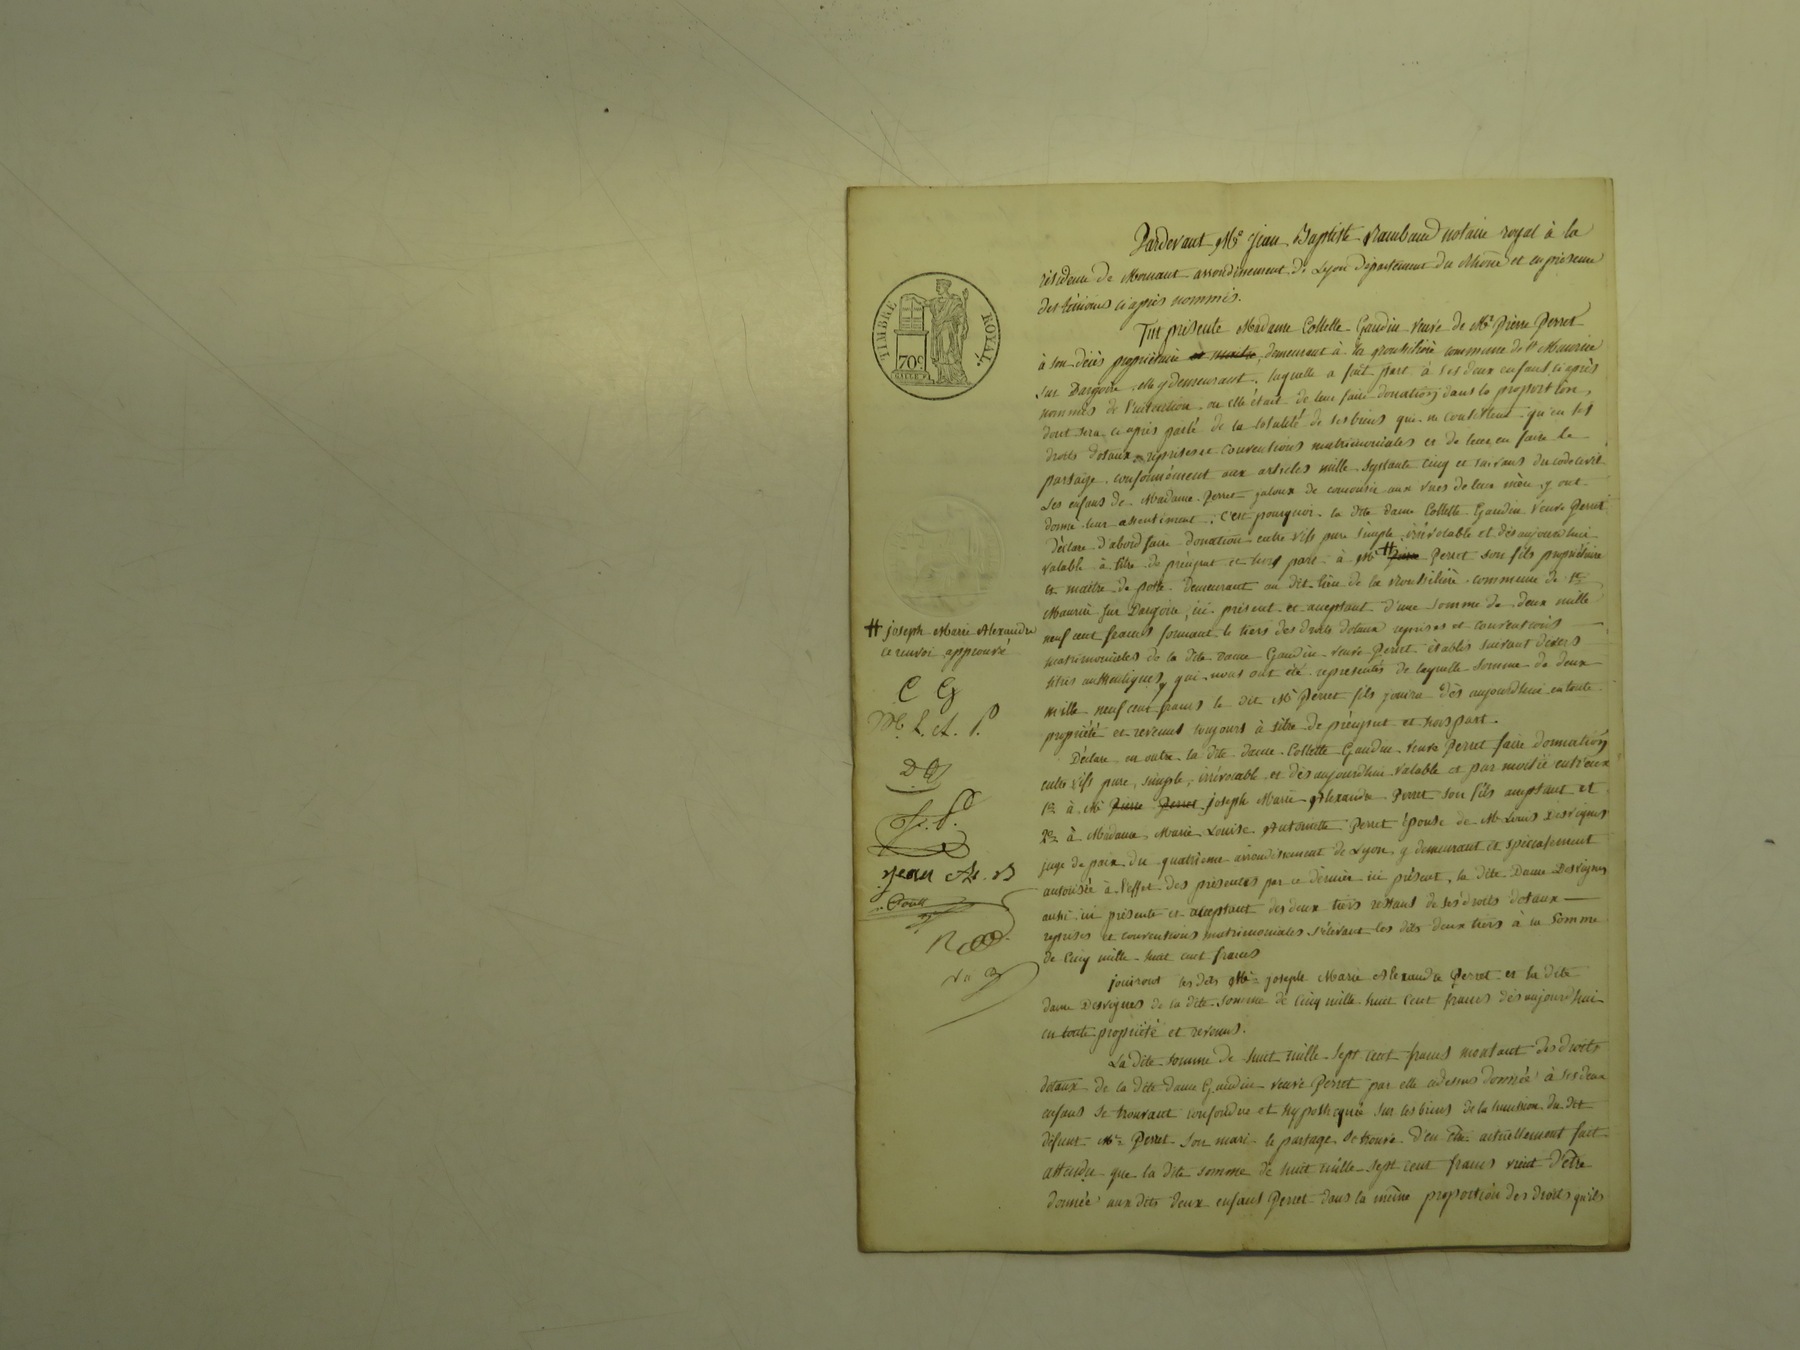 Pardevant Me jean Baptiste Rambaud notaire royal à la
résidence de Mornant arrondissement de Lyon département du Rhône et en présence
des témoins ci après nommés.
TIMBRE ROYAL
70c
Fut présente Madame Collette Gaudin veuve de Mr Pierre Perret
à son décès propriétaire demeurant à la commune de St Maurice
sur Dargoire elle y demeurant, laquelle a fait part à ses deux enfans ci après
nommés de l'intention ou elle était de leur faire donation dans la proportion,
dont sera ci après parlé de la totalité de ses biens qui ne consistent qu'en ses
droits dotaux reprises et conventions matrimoniales et de leur en faire le
partage conformément aux articles mille septante cinq et suivans du code civil
Les enfans de Madame Perret jaloux de concourir aux vues de leur mère y ont
donné leur assentiment. C'est pourquoi la dite dame Collette Gaudin veuve Perret
déclare d'abord faire donation entre vifs pure simple irrévocable et dès aujourd'hui
valable à titre de préciput et hors part à Mr # Perret son fils propriétaire
et maître de poste demeurant au dit lieu de la commune de St
Maurice sur Dargoire, ici présent et acceptant d'une somme de deux mille
neuf cent francs formant le tiers des droits dotaux reprises et conventions
matrimoniales de la dite dame Gaudin veuve Perret établis suivant divers
titres authentiques qui nous ont été représentés de laquelle somme de deux
mille neuf cent francs le dit Mr Perret fils jouira dès aujourd'hui en toute
propriété et revenus toujours à titre de préciput et hors part.
# joseph Marie Alexandre
ce renvoi approuvé
C G
jean
Déclare en outre la dite dame Collette Gaudin veuve Perret faire donnation
entre vifs pure, simple, irrévocable et dès aujourd'hui valable et par moitié entr'eux
1o à Mr Pierre Perret joseph Marie Alexandre Perret son fils acceptant et
2o à Madame Marie Louise Antoinette Perret épouse de Mr Louis Desvignes
juge de paix du quatrième arrondissement de Lyon y demeurant et spécialement
autorisée à l'effet des présentes par ce dernier ici présent, la dite Dame Desvignes
aussi ici présente et acceptant des deux tiers restans de ses droits dotaux
reprises et conventions matrimoniales s'élevant les dits deux tiers à la somme
de cinq mille huit cent francs
jouiront les dits Mr joseph Marie Alexandre Perret et la dite
dame Desvignes de la dite somme de cinq mille huit cent francs dès aujourd'hui
en toute propriété et revenus.
La dite somme de huit mille sept cent francs montant des droits
dotaux de la dite dame Gaudin veuve Perret par elle ci dessus donnée à ses deux
enfans se trouvant confondue et hypothéquée sur les biens de la succession du dit
défunt Mr Perret son mari le partage se trouve d'en être actuellement fait
attendu que la dite somme de huit mille sept cent francs vient d'être
donnée aux dits deux enfans Perret dans la même proportion des droits qu'ils